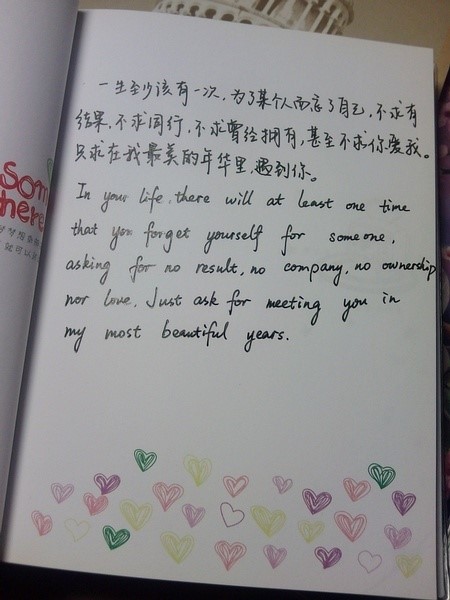 som
here
一生至少该有一次，为了某个人而忘了自己，不求有
结果，不求同行，不求曾经拥有，甚至不求你爱我。
只求在我最美的年华里，遇到你。
In your life, there will at least one time
that you forget yourself for someone,
asking for no result, no company, no ownership
nor love. Just ask for meeting you in
my most beautiful years.